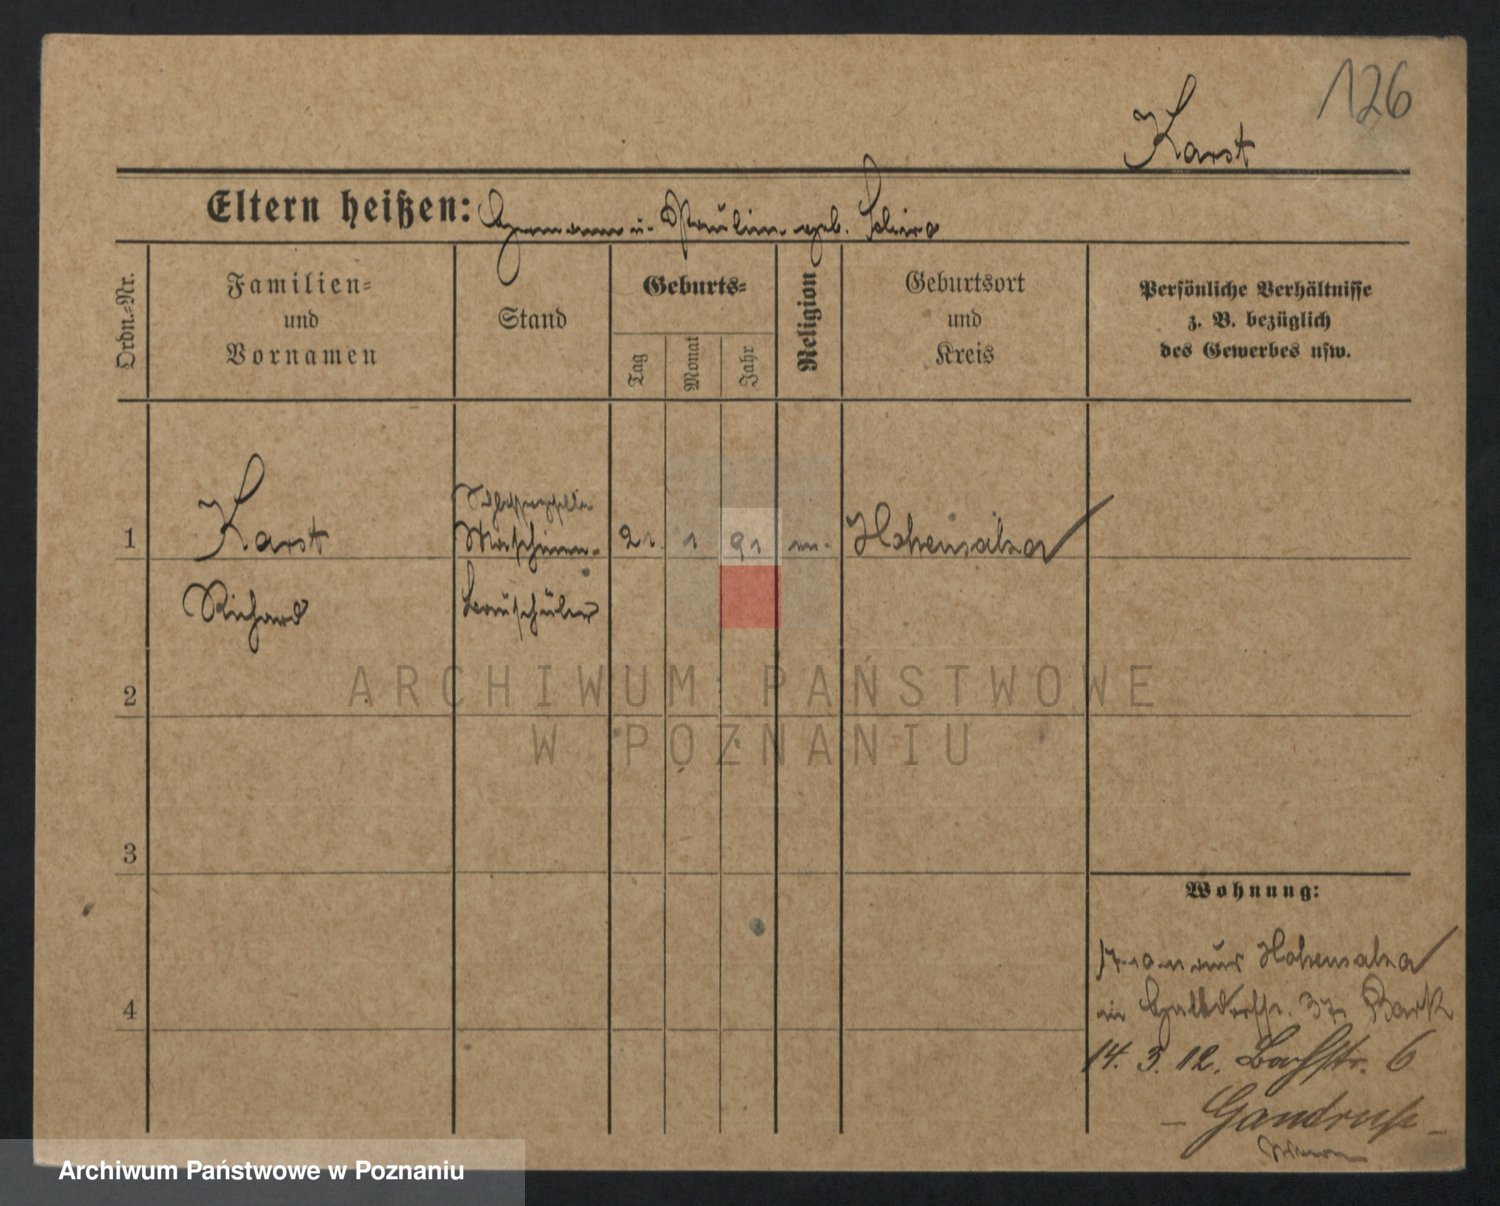 126
Karst
Eltern heißen: Hermann u. Paulin geb. Schira
Ordn.-Nr.
Familien-
und
Vornamen
Stand
Geburts-
Tag
Monat
Jahr
Religion
Geburtsort
und
Kreis
Persönliche Verhältnisse
z. B. bezüglich
des Gewerbes usw.
1
Karst
Richard
Schlossergeselle
Maschinen-
bauschüler
21. 1 91
Hohensalza
2
3
4
Wohnung:
Hohensalza
14. 3. 12. Bachstr. 6
ARCHIWUM PAŃSTWOWE
W POZNANIU
Archiwum Państwowe w Poznaniu